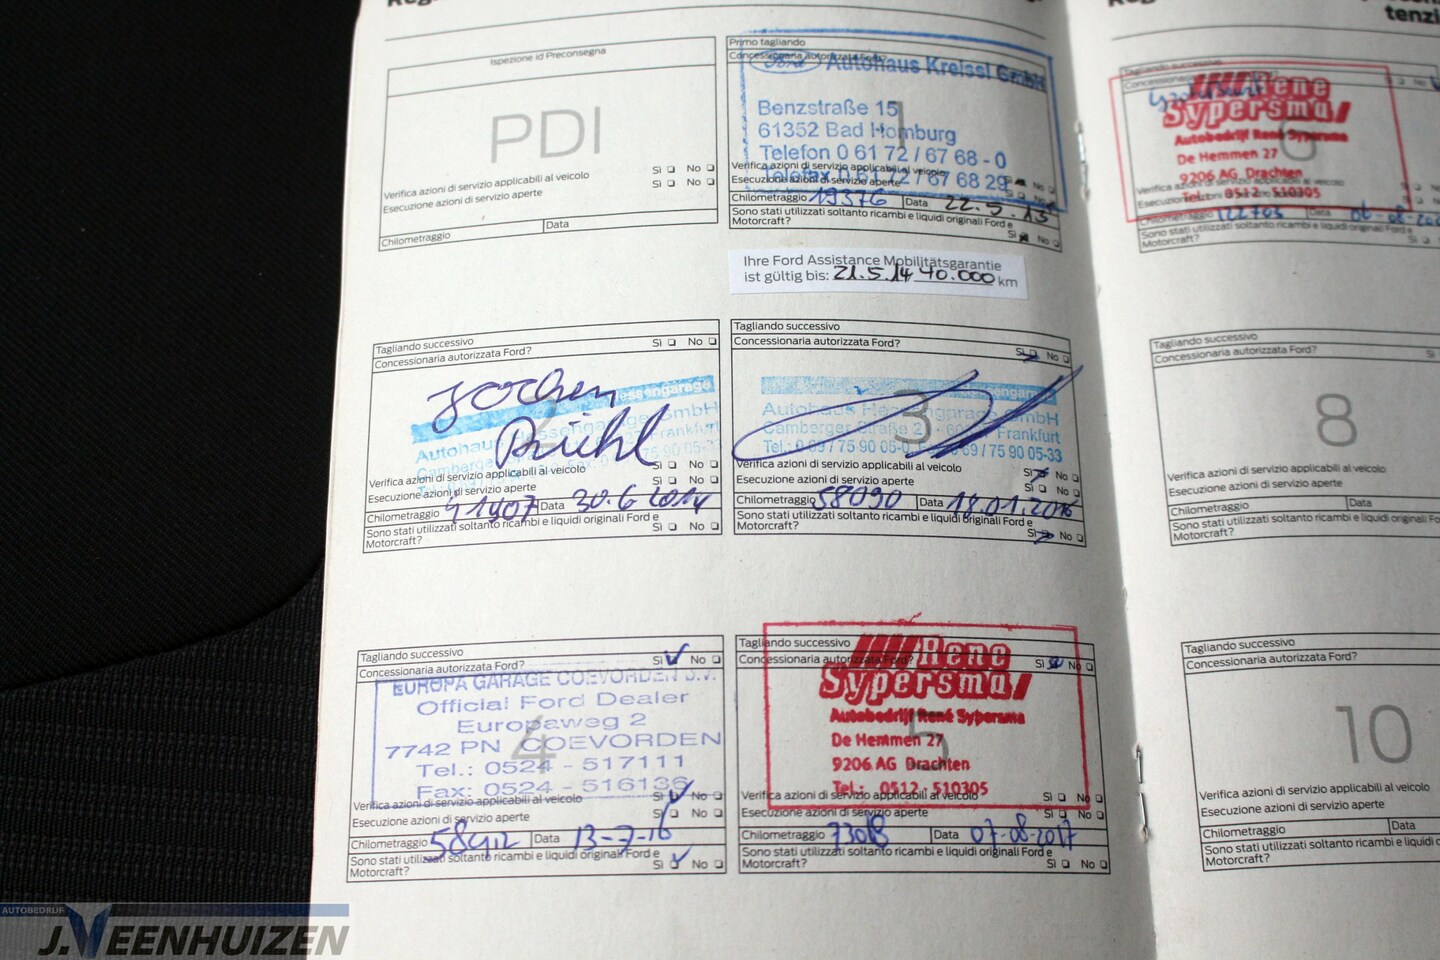 Ispezione id Preconsegna
PDI
Verifica azioni di servizio applicabili al veicolo Sì No
Esecuzione azioni di servizio aperte Sì No
Chilometraggio Data
Primo tagliando
Concessionaria autorizzata Ford?
Ford Autohaus Kreissl GmbH
1
Benzstraße 15
61352 Bad Homburg
Telefon 0 61 72 / 67 68 - 0
Verifica azioni di servizio applicabili al veicolo
Telefax 0 61 72 / 67 68 29
Esecuzione azioni di servizio aperte No
Chilometraggio 19376 Data 22.5.13
Sono stati utilizzati soltanto ricambi e liquidi originali Ford e
Motorcraft? Sì No
Ihre Ford Assistance Mobilitätsgarantie
ist gültig bis: 21.5.14 40.000 km
Tagliando successivo
Concessionaria autorizzata Ford? Sì No
Jochen
Autohaus Hessengarage GmbH
2
Verifica azioni di servizio applicabili al veicolo Sì No
Esecuzione azioni di servizio aperte Sì No
Chilometraggio 41907 Data 30.6 2014
Sono stati utilizzati soltanto ricambi e liquidi originali Ford e
Motorcraft? Sì No
Tagliando successivo
Concessionaria autorizzata Ford? Sì No
Hessengarage
3
Autohaus Hessengarage GmbH
Camberger Straße Frankfurt
Tel.: 0 69 / 75 90 05-0, Fax 0 69 / 75 90 05-33
Verifica azioni di servizio applicabili al veicolo Sì No
Esecuzione azioni di servizio aperte Sì No
Chilometraggio 58090 Data 18.01.2016
Sono stati utilizzati soltanto ricambi e liquidi originali Ford e
Motorcraft? Sì No
Tagliando successivo
Concessionaria autorizzata Ford? Sì No
EUROPA GARAGE COEVORDEN B.V.
Official Ford Dealer
Europaweg 2
4
7742 PN COEVORDEN
Tel.: 0524 - 517111
Fax: 0524 - 516136
Verifica azioni di servizio applicabili al veicolo Sì No
Esecuzione azioni di servizio aperte Sì No
Chilometraggio Data 13-7-16
Sono stati utilizzati soltanto ricambi e liquidi originali Ford e
Motorcraft? Sì No
Tagliando successivo
Concessionaria autorizzata Ford? Sì No
Rene
Sypersma
Autobedrijf René Sypersma
5
De Hemmen 27
9206 AG Drachten
Tel.: 0512 - 510305
Verifica azioni di servizio applicabili al veicolo Sì No
Esecuzione azioni di servizio aperte Sì No
Chilometraggio 73018 Data 07-08-2017
Sono stati utilizzati soltanto ricambi e liquidi originali Ford e
Motorcraft? Sì No
Tagliando
Rene
Sypersma
6
Autobedrijf René Sypersma
De Hemmen 27
9206 AG Drachten
Verifica azioni di servizio applicabili al veicolo
Tel.: 0512 - 510305
Chilometraggio 122703 Data
Sono stati utilizzati soltanto ricambi e liquidi originali
Motorcraft? Sì
Tagliando successivo
Concessionaria autorizzata Ford? Sì
8
Verifica azioni di servizio applicabili al veicolo
Esecuzione azioni di servizio aperte
Chilometraggio Data
Sono stati utilizzati soltanto ricambi e liquidi originali
Motorcraft?
Tagliando successivo
Concessionaria autorizzata Ford?
10
Verifica azioni di servizio applicabili al veicolo
Esecuzione azioni di servizio aperte
Chilometraggio Data
Sono stati utilizzati soltanto ricambi e liquidi
Motorcraft?
AUTOBEDRIJF
J. VEENHUIZEN